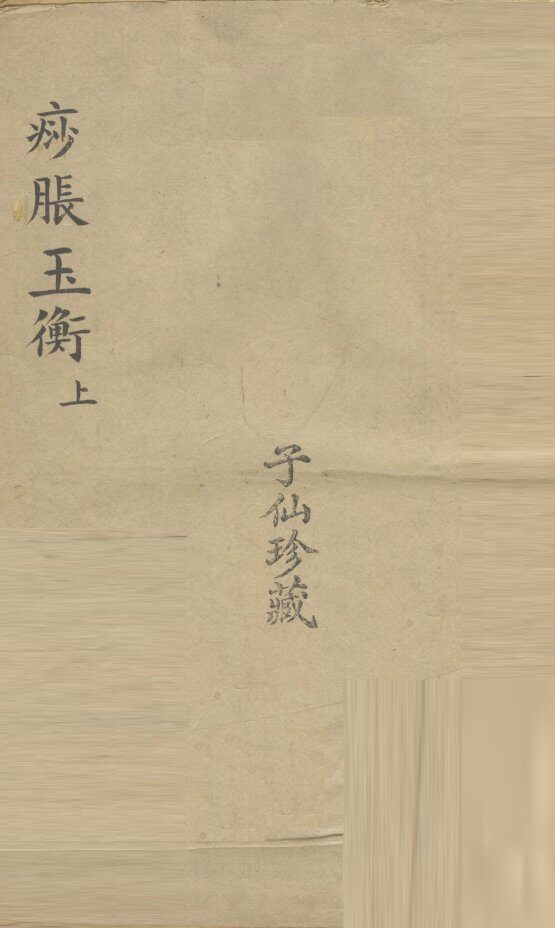 痧脹玉衡 上
子仙珍藏